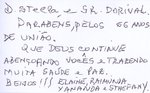 D. STELLA E SR. DORIVAL.
PARABENS, PELOS 66 ANOS
DE UNIÃO.
QUE DEUS CONTINUE
ABENÇOANDO VOCÊS E TRAZENDO
MUITA SAÚDE E PAZ.
BEIJOS!!! ELAINE, RAIMUNDA,
YANANDA E STHEFANY.